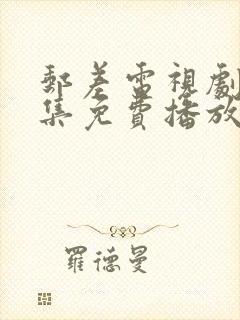 郵差電視劇
集免費播放
羅德曼